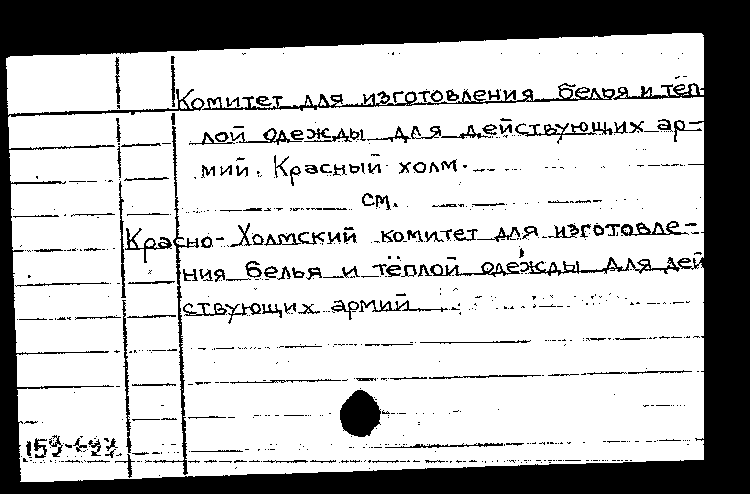 Комитет для изготовления белья и тёп-
лой одежды для действующих ар-
мий. Красный холм.
см.
Красно-Холмский комитет для изготовле-
ния белья и тёплой одежды для дей
ствующих армий